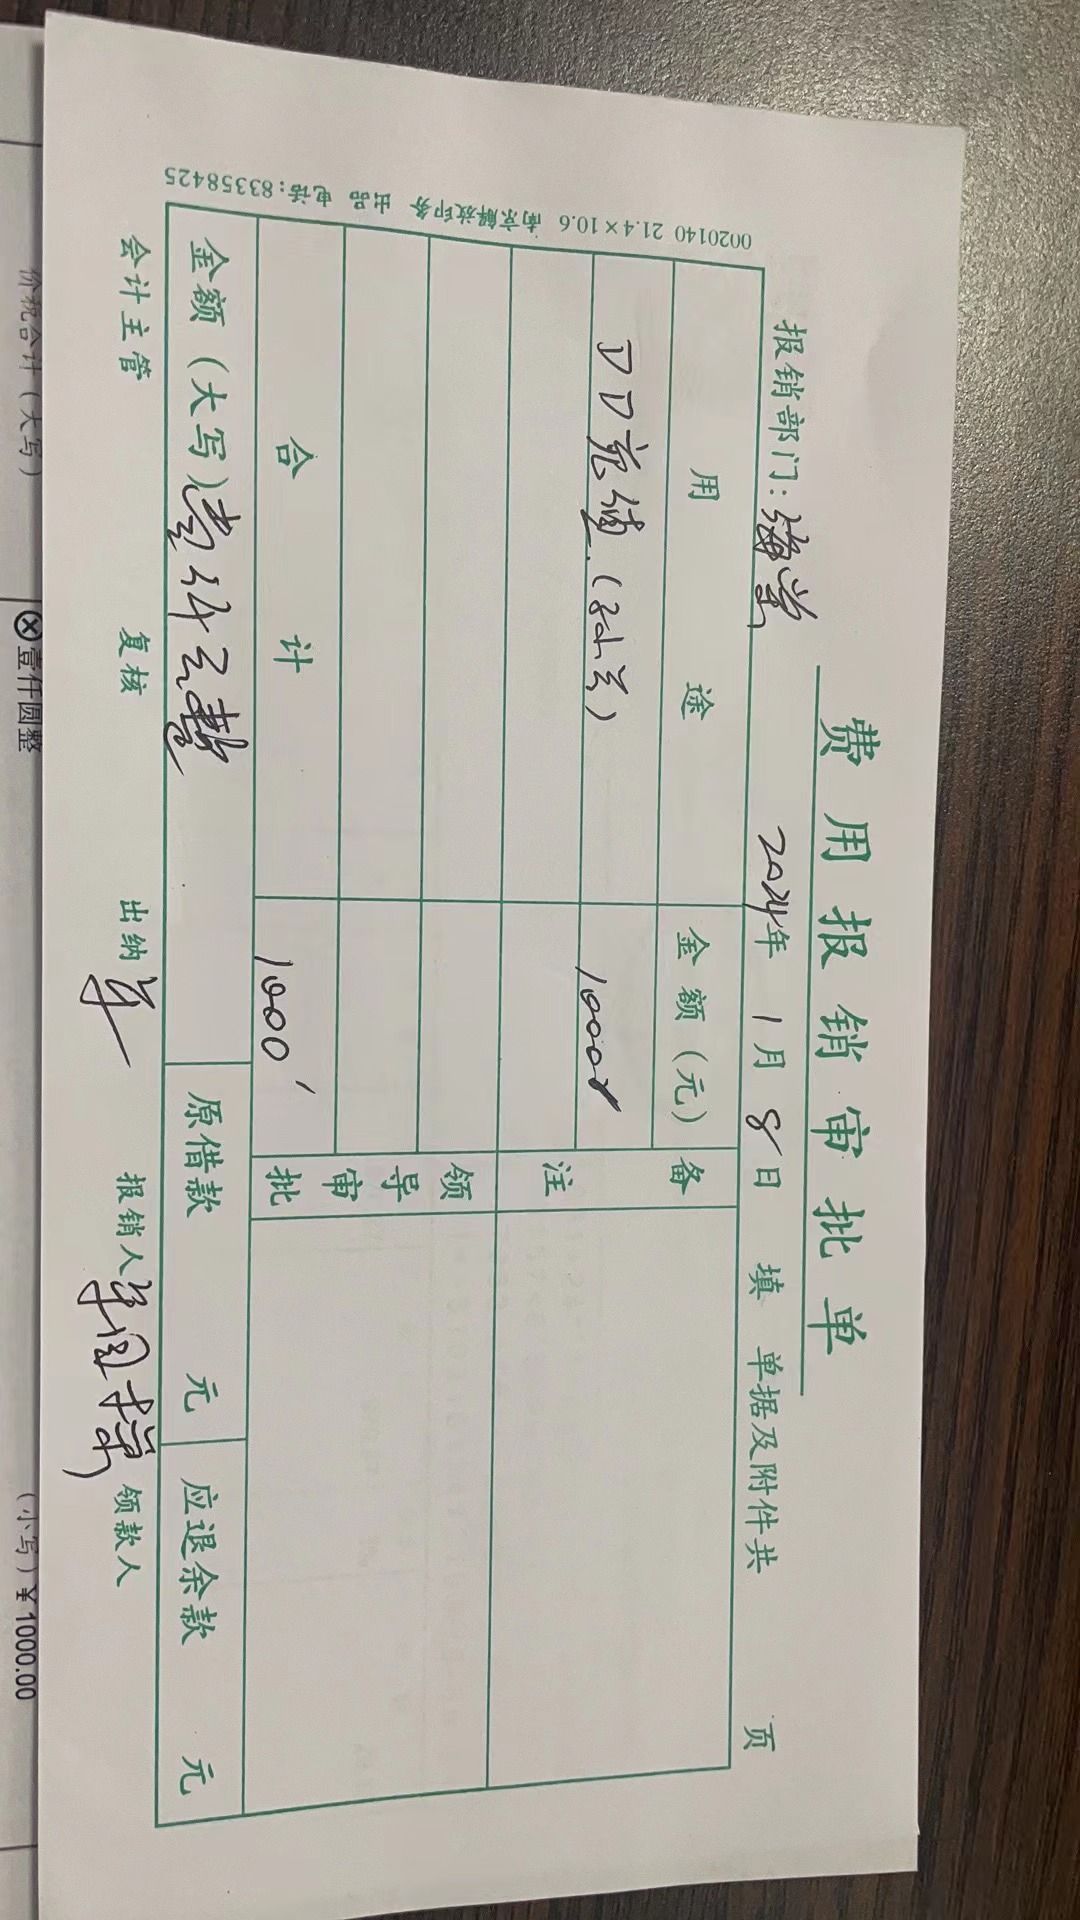 费用报销审批单
报销部门：海棠 2024年 1月 8日 填 单据及附件共 页
用途 金额（元） 备注
DD充值（对公） 1000
领导审批
合计 1000
金额（大写）壹仟元整 原借款 元 应退余款 元
会计主管 复核 出纳 报销人 领款人
0020140 21.4×10.6 南京解放印务 出品 电话：83358425
价税合计（大写） ⊗壹仟圆整 （小写）¥1000.00